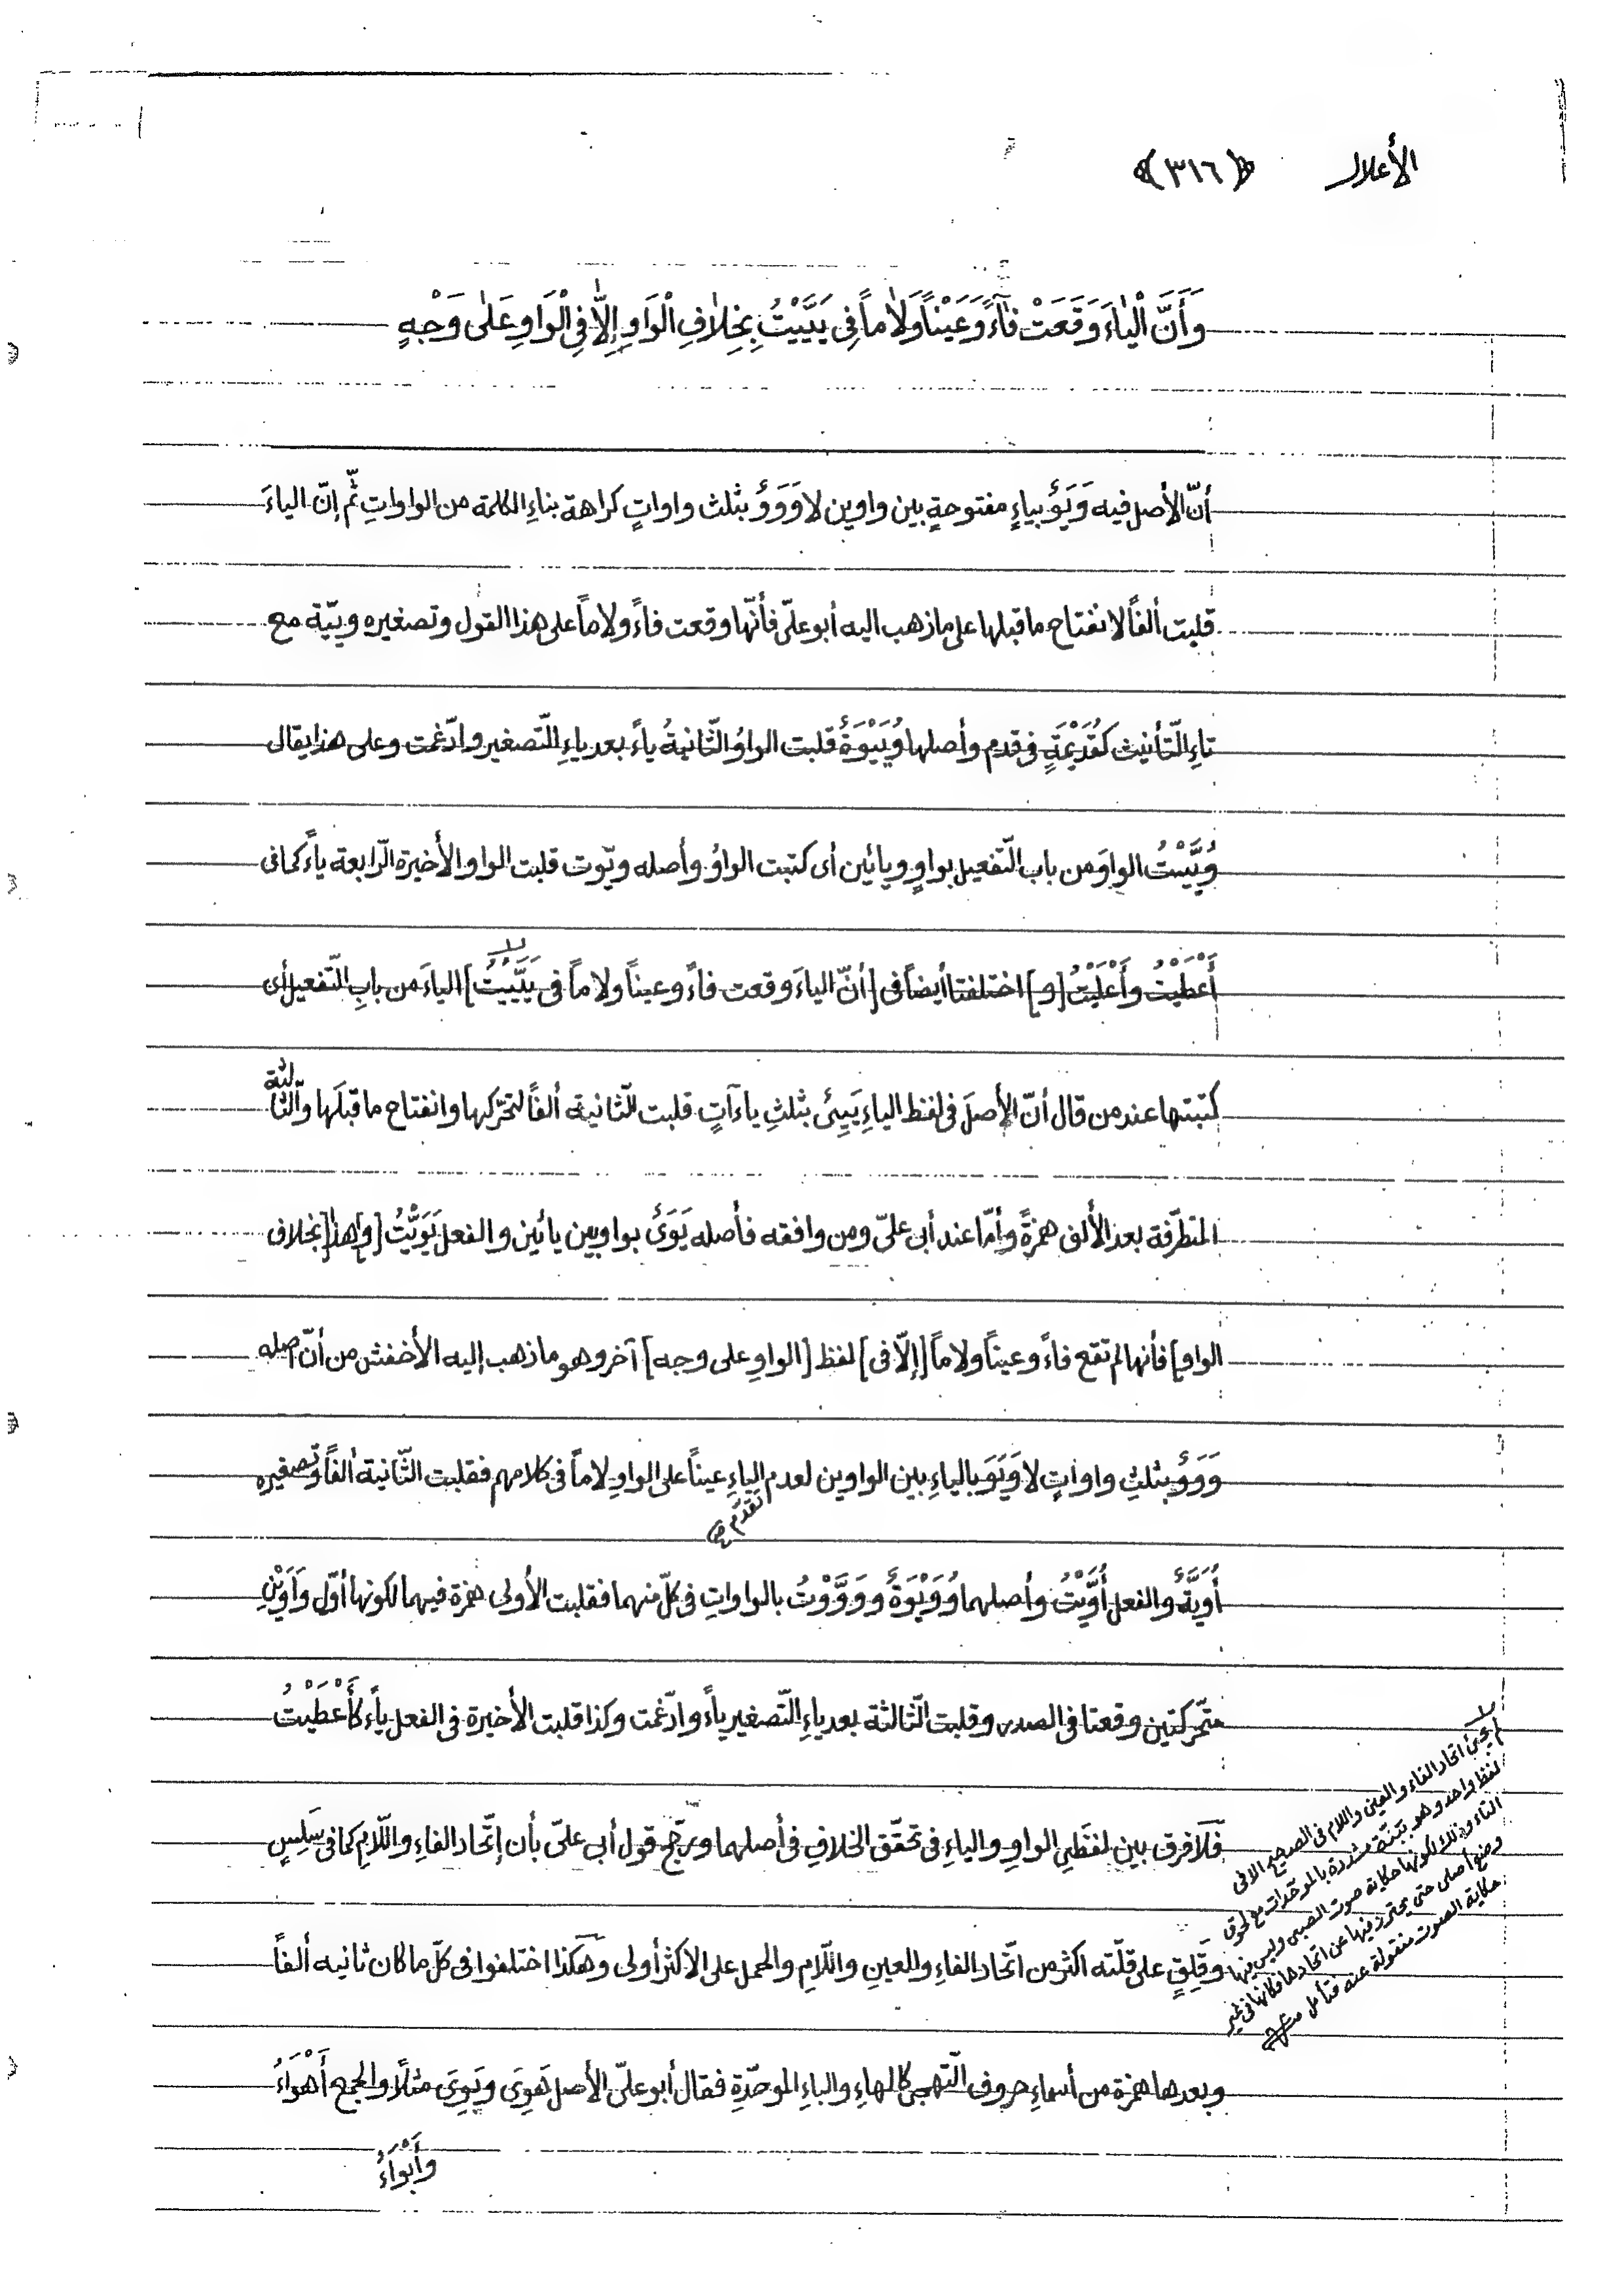 الأعلال ﴿٣١٦﴾
وَأَنَّ الْيٰاءَ وَقَعَتْ فٰاءً وَعَيْناً وَلاٰماً فِى يَيَّيْتُ بِخِلاٰفِ الْوٰاوِ إِلاّٰ فِى الْوٰاوِ عَلىٰ وَجْهٍ
أنّ الأصل فيه وَيَوٌ بياءٍ مفتوحةٍ بين واوين لا وَوَوٌ بثلث واواتٍ كراهة بناءِ الكلمة من الواواتِ ثّم إنّ الياءَ
قلبت ألفاً لانفتاح ما قبلها على ما ذهب اليه أبو علىّ فأنّها وقعت فاءً ولاماً على هذا القول وتصغيره وييّة مع
تاءِ التّأنيث كقُدَيْمَةٍ فى قدم وأصلها وُيَيْوَةٌ قلبت الواوُ الثّانيةُ ياءً بعد ياءِ التّصغير وادّغمت وعلى هذا يقال
وُيَّيْتُ الواوَ من باب التّفعيل بواوٍ ويائين أى كتبت الواوُ وأصله ويّوت قلبت الواو الأخيرة الرّابعة ياءً كما فى
أَعْطَيْتُ وأَعْلَيْتُ [و] اختلفتا أيضاً فى [أنّ الياءَ وقعت فاءً وعيناً ولاماً فى يَيَّيْتُ] الياءَ من بابِ التّفعيل أى
كتبتها عند من قال أنّ الأصلَ فى لفظ الياءِ يَيِىٌ بثلثِ ياءآتٍ قلبت الثّانية ألفاً لتحرّكها وانفتاح ما قبلَها والثّالثة
المتطرّفة بعد الألف همزةً وأمّا عند أبى علىّ ومن وافقه فأصله يَوَىٌ بواو بين يائين والفعل يَوَيْتُ [و] هذا [بخلاف
الواو] فأنها لم تقع فاءً وعيناً ولاماً [إلاّ فى] لفظ [الواوِ على وجه] آخر وهو ما ذهب إليه الأخفش من أنّ اصله
وَوَوٌ بثلثِ واواتٍ لا وَيَوَ بالياءِ بين الواوين لعدم الياءِ عيناً على الواوِ لاماً فى كلامهم فقلبت الثّانية ألفاً وتصغيره
تقدّم
أُوَيَّةٌ والفعل أُوَّيْتُ وأصلهما وُوَيْوَةٌ وَوَوَّوْتُ بالواواتِ فى كلّ منهما فقلبت الأولى همزة فيهما لكونها أوّل وٰاوَيْنِ
متحّركتين وقعتا فى الصدر وقلبت الثّالثة بعد ياءِ التّصغير ياءً وادّغمت وكذا قلبت الأخيرة فى الفعل ياءً كأَعْطَيْتُ
فلا فرق بين لفظَىِ الواوِ والياءِ فى تحقّق الخلافِ فى أصلهما ويرجّح قول أبى علىّ بأن إتّحاد الفاءِ واللّامِ كما فى سَلِسٍ
وقَلِقٍ على قلّته اكثر من اتّحاد الفاءِ والعينِ واللّامِ والحمل على الاكثر أولى وَهٰكَذا اختلفوا فى كلّ ما كان ثانيه ألفاً
وبعدها همزة من أسماءِ حروف التّهجى كالهاءِ والباءِ الموحّدةِ فقال أبو علىّ الأصل هَوِىَ وبَوِىَ مثلاً والجمع أَهْوٰاءٌ
وأَبْوٰاءٌ
لم يجئ اتحاد الفاء والعين واللام فى الصحيح الا فى
لفظ واحد وهو ببّة مشددة بالموحدات مع لحوق
التاء وذلك لكونها حكاية صوت الصبى وليس فيها
وضع أصلى حتى يحترز فيها عن اتحادها فكأنها فى غير
حكاية الصوت منقولة عنه فتأمل منه